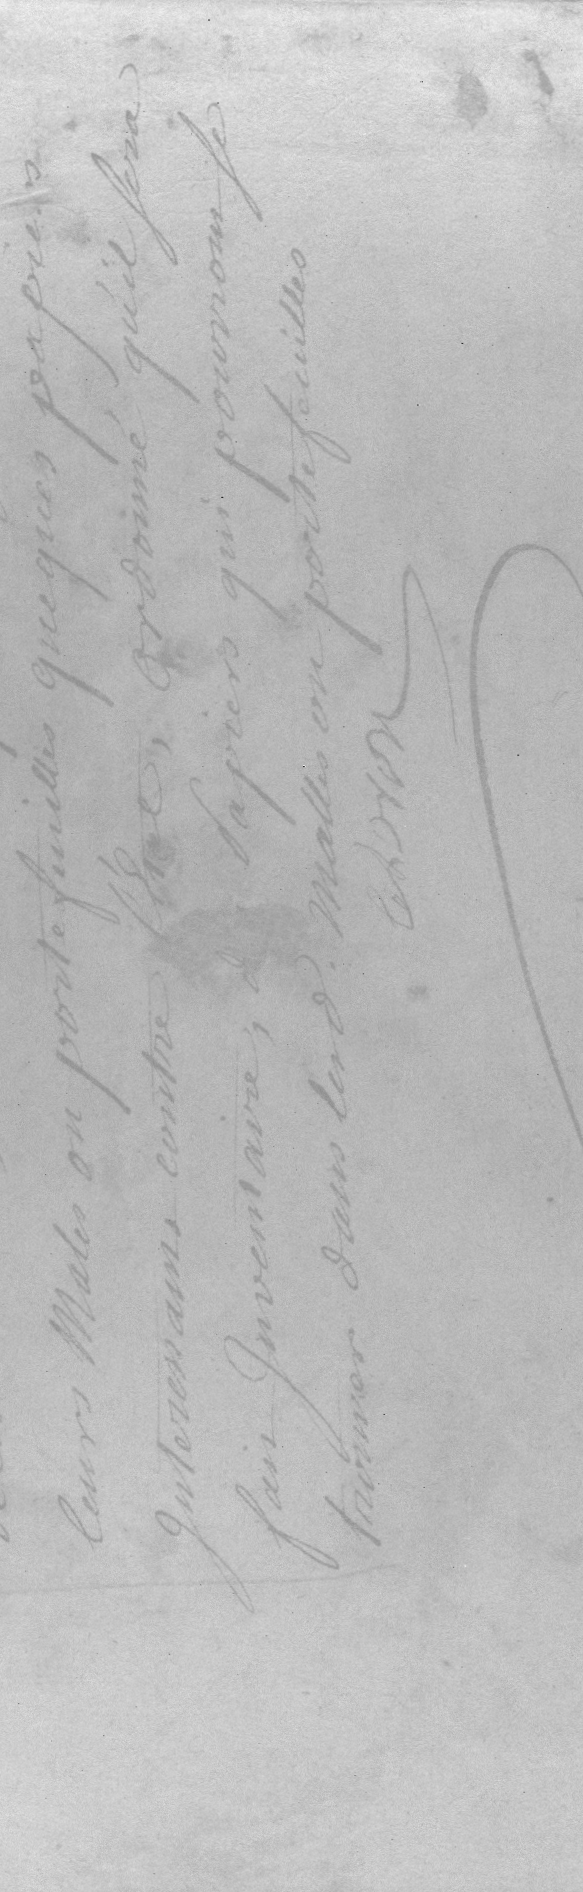 leurs Males ou portefeuilles queques papiers
Interessans contre l'Etat, ordonné qu'il sera
fait Inventaire, d Papiers qui pourront se
trouver dans lesd. Malles ou portefeuilles